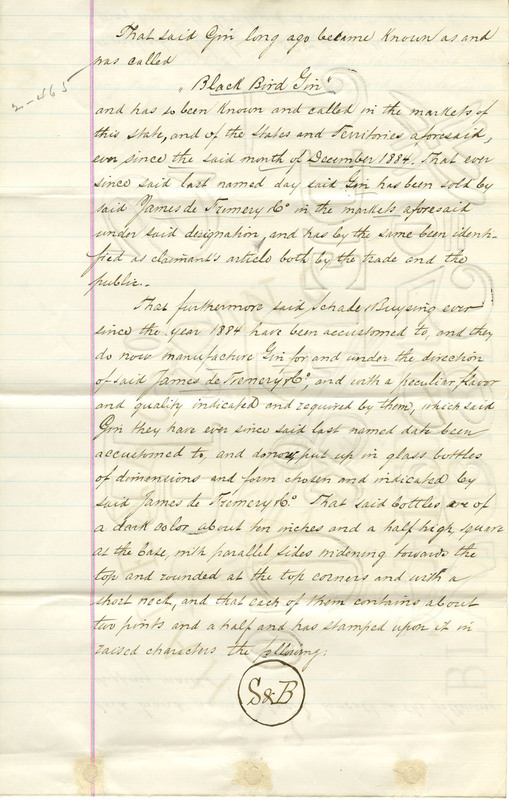 That said Gin long ago became known as and
was called
"Black Bird Gin"
2-565
and has so been known and called in the markets of
this state, and of the States and Territories aforesaid,
ever since the said month of December 1884. That ever
since said last named day said Gin has been sold by
said James de Fremery & Co in the markets aforesaid
under said designation, and has by the same been identi-
fied as claimant's article both by the trade and the
public.
That furthermore said Schade & Buysing ever
since the year 1884 have been accustomed to, and they
do now manufacture Gin for and under the direction
of said James de Fremery & Co, and with a peculiar flavor
and quality indicated and required by them, which said
Gin they have ever since said last named date been
accustomed to, and do now put up in glass bottles
of dimensions and form chosen and indicated by
said James de Fremery & Co. That said bottles are of
a dark color about ten inches and a half high square
at the base, with parallel sides widening towards the
top and rounded at the top corners and with a
short neck, and that each of them contains about
two pints and a half and has stamped upon it in
raised characters the following:
S&B